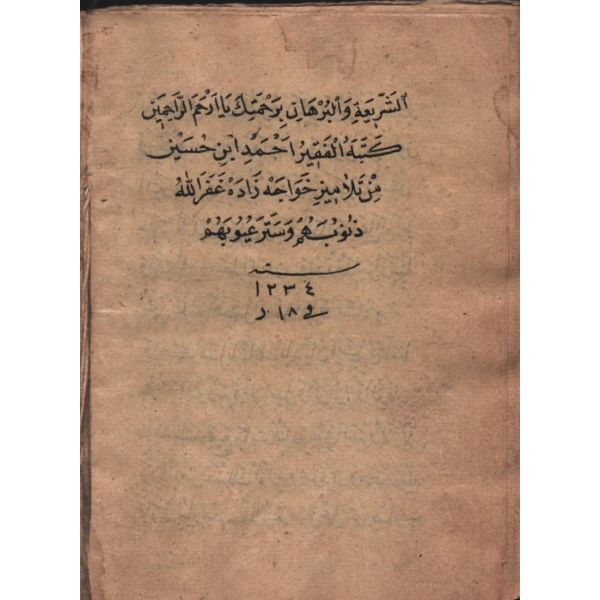 الشَّرِيعَةِ وَالْبُرْهَانِ بِرَحْمَتِكَ يَا أَرْحَمَ الرَّاحِمِينَ
كَتَبَهُ الْفَقِيرُ اَحْمَدِ ابْنِ حُسَيْنِ
مِنْ تَلَامِيزِ خَوَاجَه زَادَه غَفَرَ اللهُ
ذُنُوبَهُمْ وَسَتَرَ عُيُوبَهُمْ
سنه
١٢٣٤
في ١٨ ر